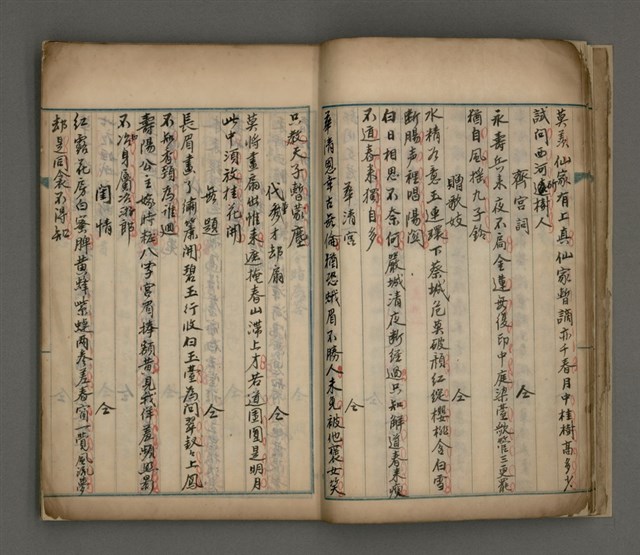 莫羨仙家有上真仙家暫謫亦千春月中桂樹高多少
試問西河斫樹人
齊宮詞　仝
永壽兵來夜不扃金蓮無復印中庭梁臺歌管三更罷
猶自風搖九子鈴
贈歌妓　仝
水精如意玉連環下蔡城危莫破顏紅綻櫻桃含白雪
斷腸聲裡唱陽關
白日相思不奈何嚴城清夜斷經過只知解道春來瘦
不道春來獨自多
華清宮　仝
華清恩幸古無倫猶恐蛾眉不勝人未免被他褒女笑
只教天子暫蒙塵
代董秀才却扇　仝
莫將畫扇出帷來遮掩春山滯上才若道團圓是明月
此中須放桂花開
無題　仝
長眉畫了繡簾開碧玉行收白玉臺為問翠釵上鳳
不知香頸為誰迴
壽陽公主嫁時粧八字宮眉捧額黃見我佯羞頻照影
不知身屬冶遊郎
閨情　仝
紅露花房白蜜脾黃蜂紫蝶兩參差春窗一覺風流夢
却是同衾不得知